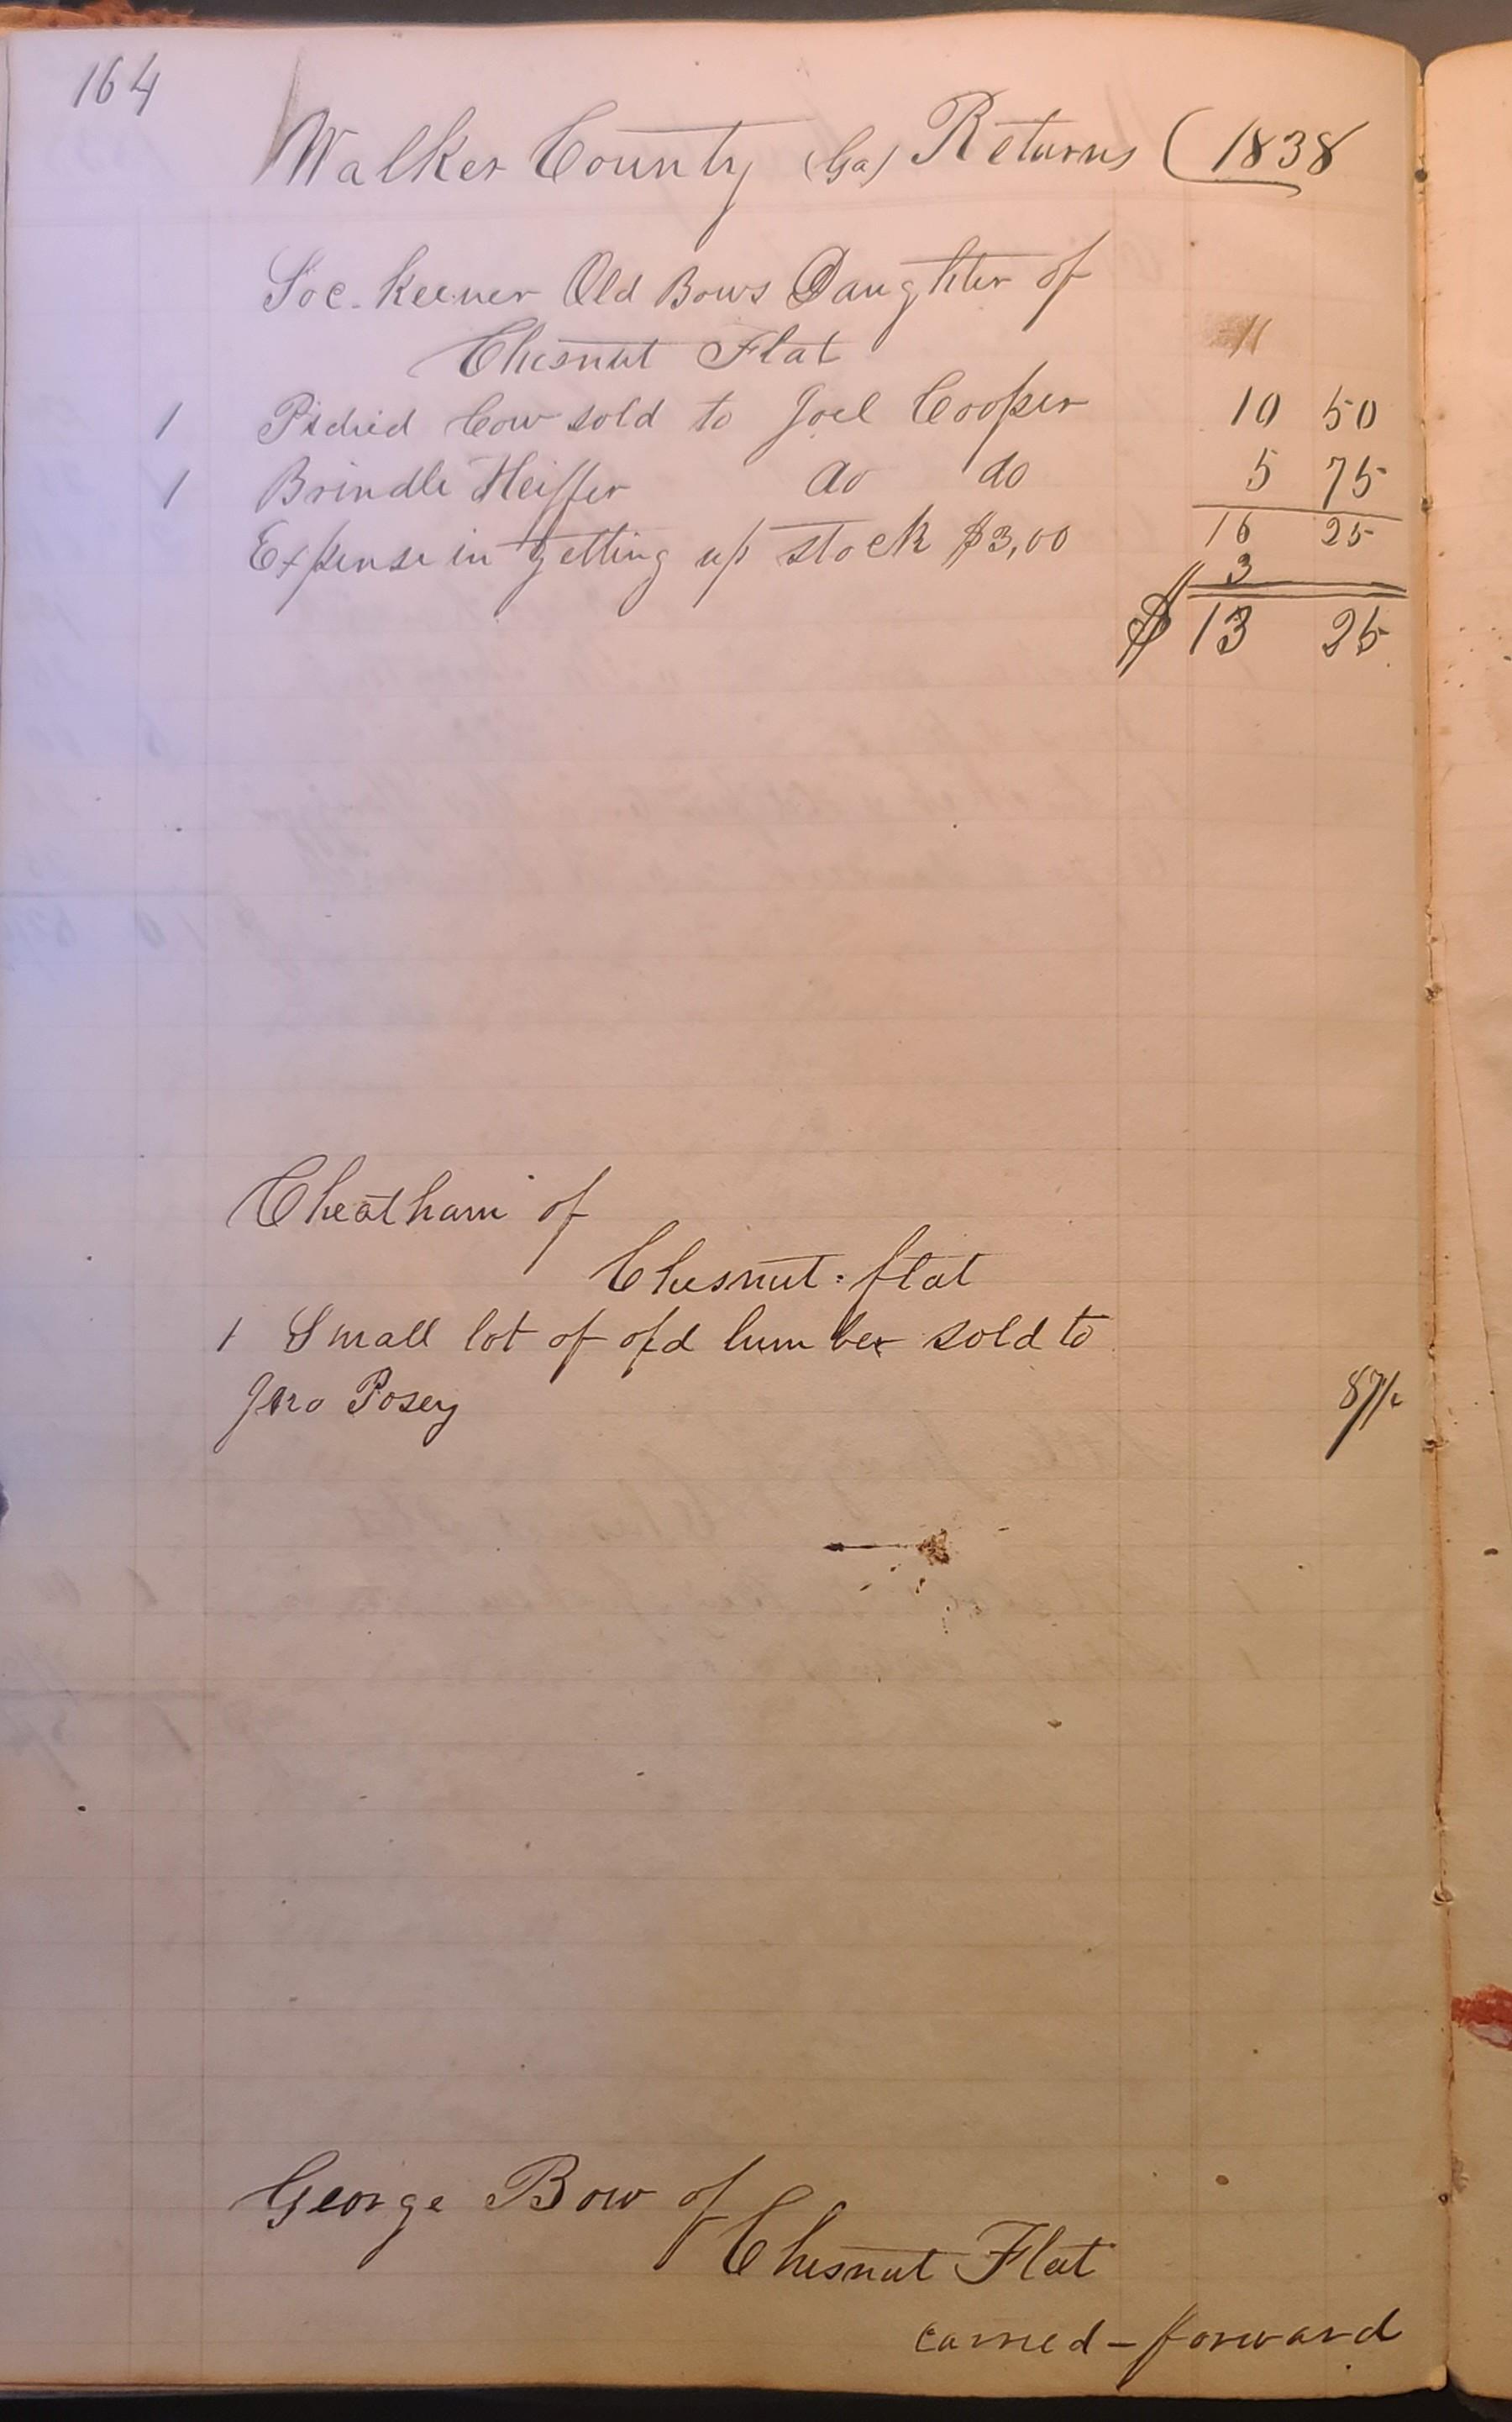 164
Walker County (Ga) Returns (1838
Soc-keener Old Bows Daughter of
Chesnut Flat
1 Pidied Cow sold to Joel Cooper 10 50
1 Brindle Heiffer do do 5 75
Expense in getting up stock $3,00 16 25
3
$ 13 25
Cheatham of
Chesnut = flat
1 Small lot of old lumber sold to
Jno Posey 87 1/2
George Bow of
Chesnut Flat
carried - forward